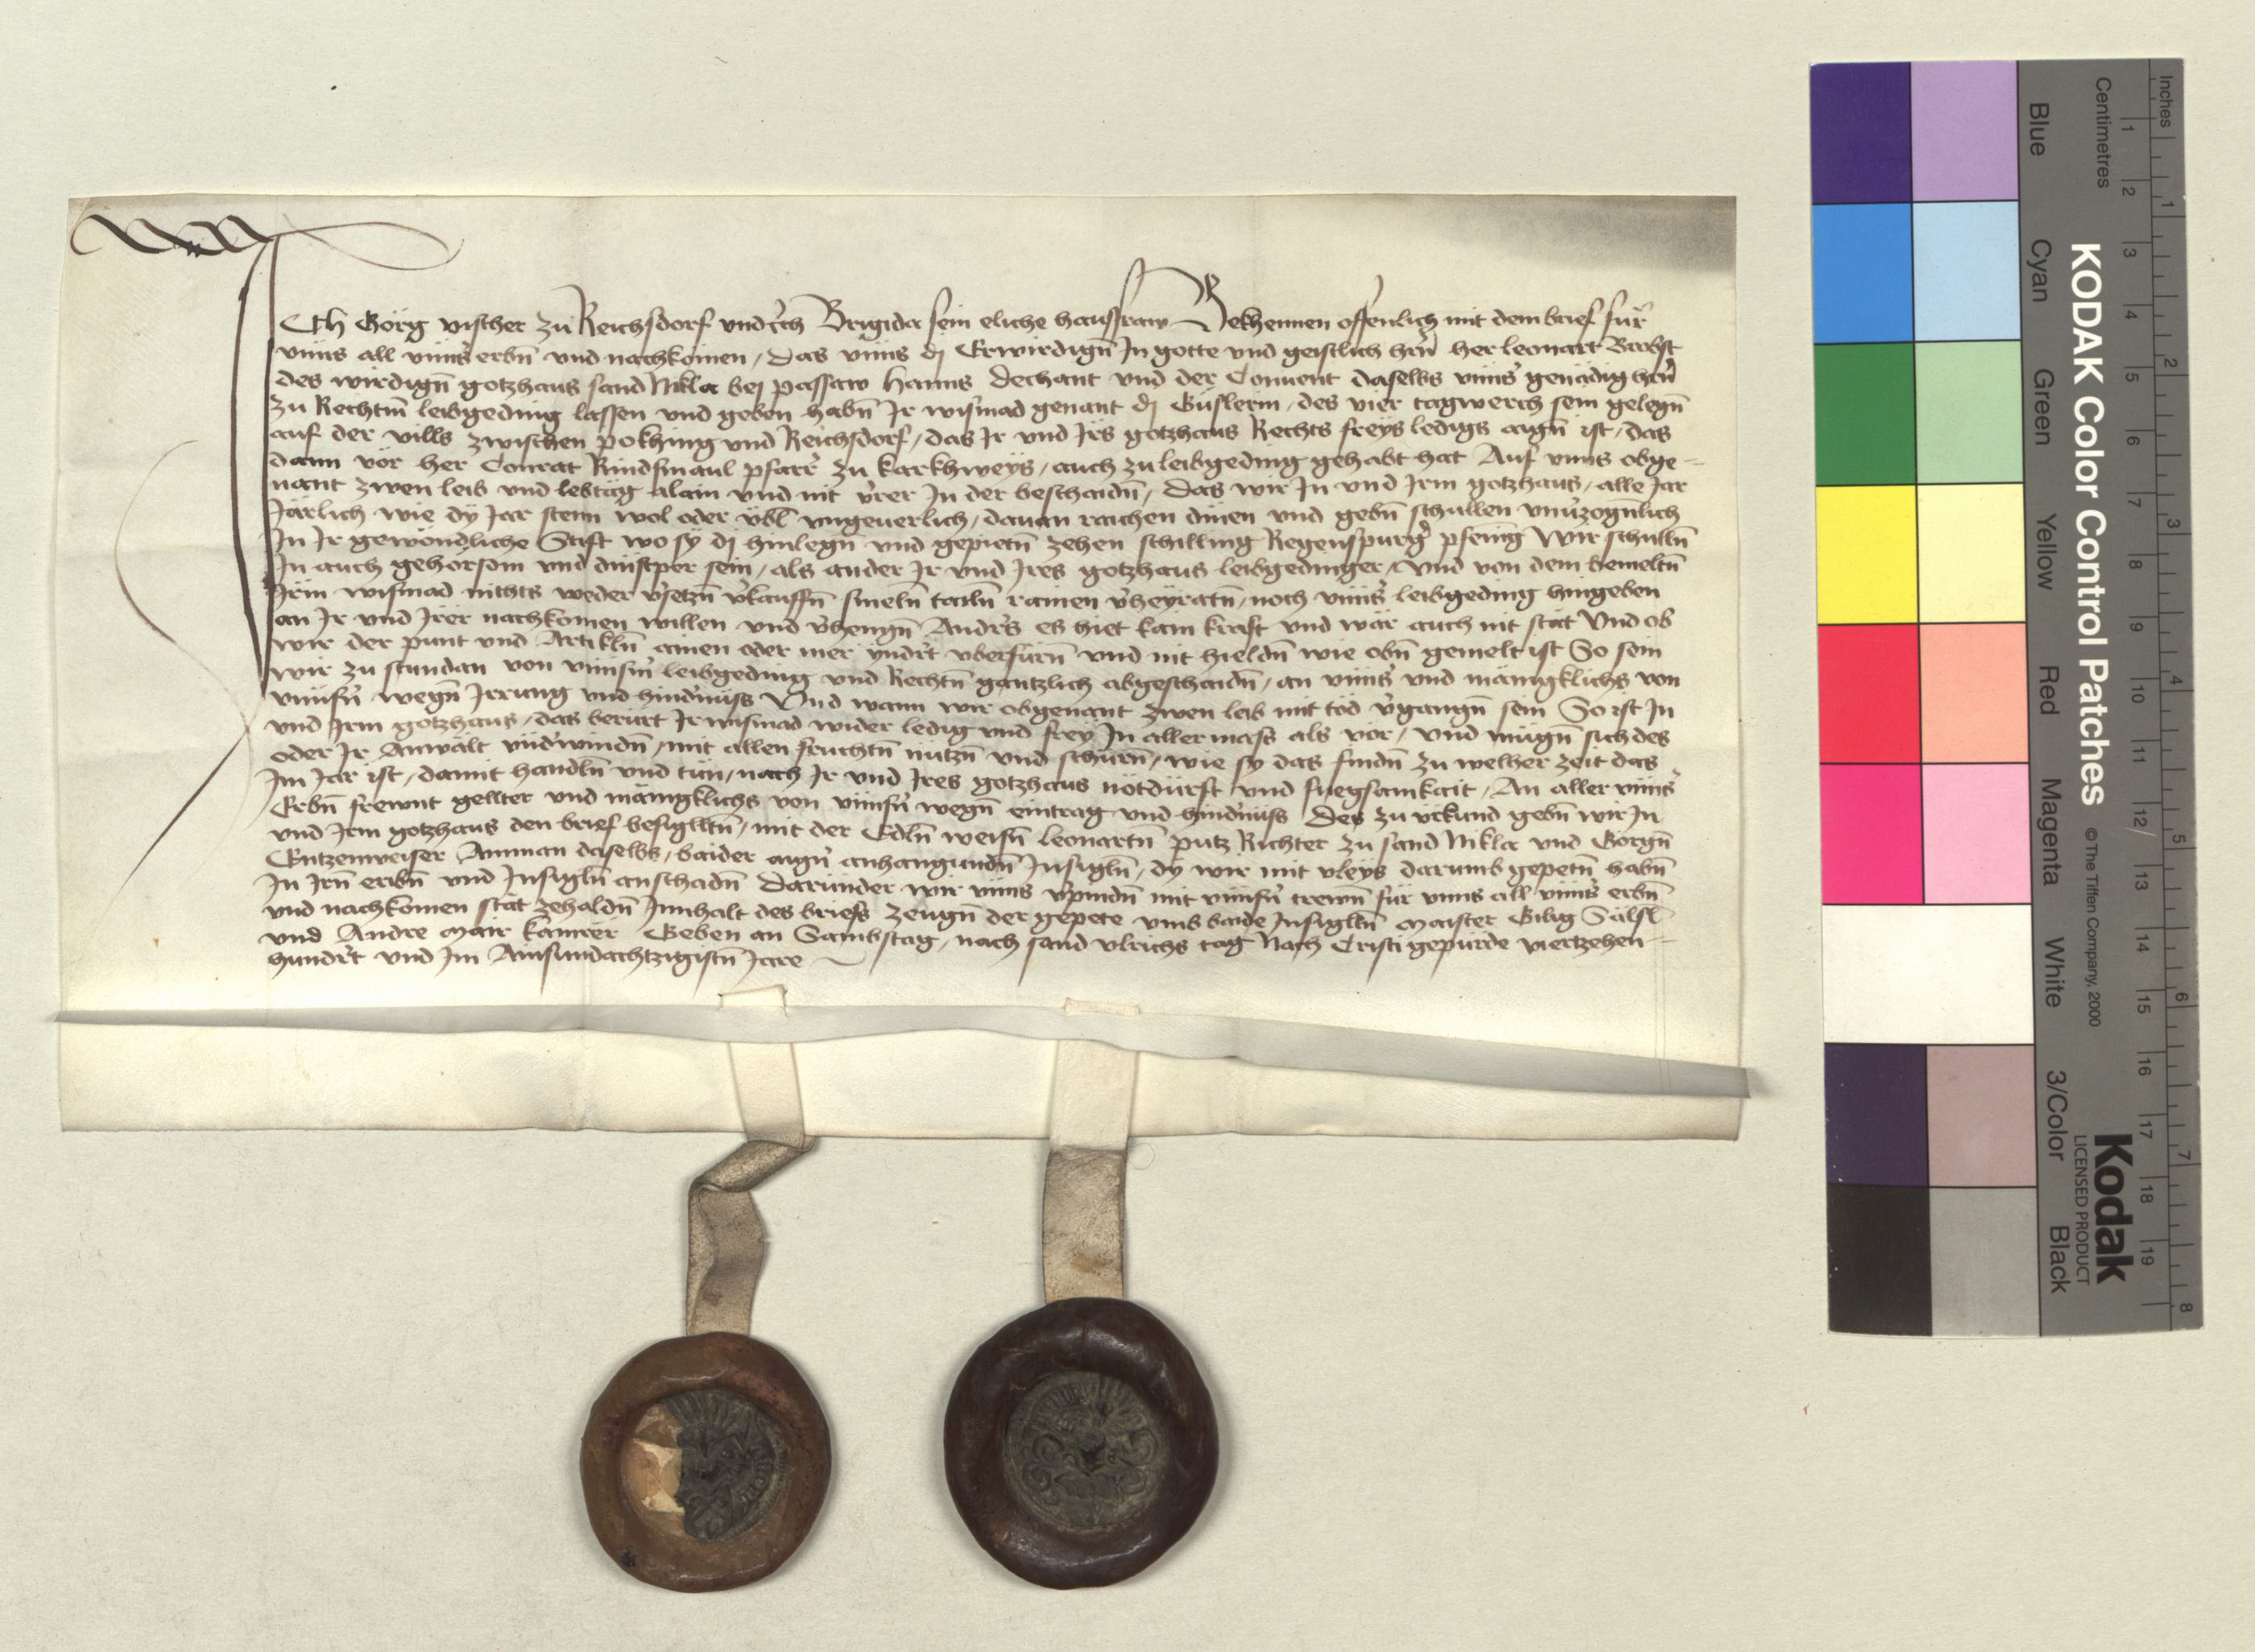 Ich Görg vischer zu Reichsdorf vnd ich Brigida sein eliche hausfraw Bekhennen offenlich mit dem brief für
vnns all vnnsˀ erbn̄ vnd nachkömen / Das vnns dj Erwirdign̄ In gotte vnd geistlich hrn̄ her leonart Brobst
des wirdign̄ gotzhaus sand Nikla bej passaw Hanns Dechant vnd der Conuent daselbs vnnsˀ genädig hrn̄
zu Rechtm̄ leibgeding lassen vnd geben habn̄ Ir wismad genant dj Güslerin / des vier tagwerch sein gelegn̄
auf der vills zwischen pokhing vnd Reichsdorf / das Ir vnd Irs gotzhaus Rechts freys ledigs aign̄ ist / das
dann vor her Conrat Rindsmaul pfarrˀ zu karkhweys / auch zu leibgeding gehabt hat Auf vnns obge-
nant zwen leib vnd lebtäg alain vnd nit v̄rer In der beschaidn̄ / Das wir In vnd Irm gotzhaus / alle Jar
Järlich wie dy Jar stenn wol oder übl vngeuerlich / dauan raichen dinen vnd gebn̄ schullen vnuˀzognlich
In Ir gewondliche Stift wo sy dj hinlegn̄ vnd gepietn̄ zehen schilling Regenspurgˀ pfening Wir schulln̄
In auch gehorsom vnd dinstper sein / als ander Ir vnd Ires gotzhaus leibgedinger / Vnd von dem bemeltn̄
Irm wismad nichts weder vˀsetzn̄ vˀkauffn̄ smeln̄ tailn̄ rainen vˀheyratn̄ / noch vnnsˀ leibgeding hingeben
an Ir vnd Irer nachkomen willen vnd vˀhengn̄ Andrˀs es hiet kain kraft vnd wär auch nit stät Vnd ob
wir der punt vnd Artikln̄ ainen oder mer yndrˀt vberfürn̄ vnd nit hieldn̄ wie obn̄ gemelt ist So sein
wir zu stundan von vnnsm̄ leibgeding vnd Rechtn̄ gantzlich abgeschaidn̄ / an vnnsˀ vnd mänigklichs von
vnnsn̄ wegn̄ Irrung vnd hindˀnüss Vnd wann wir obgenant zwen leib mit töd vˀgangn̄ sein So ist In
vnd Irm gotzhaus / das berürt Ir wismad wider ledig vnd frey In aller mass als vor / vnd mügn̄ sich des
oder Ir Anwält vndˀwindn̄ / mit allen fruchtn̄ nutzn̄ vnd schürn̄ / wie sy das findn̄ zu welher zeit das
Im Jar ist / damit handln̄ vnd tün / nach Ir vnd Ires gotzhaus nötdürft vnd fuegsamkait / An aller vnnsˀ
Erbn̄ frewnt gellter vnd mänigklichs von vnnsn̄ wegn̄ eintrag vnd hindˀnüss Des zu vrkund gebn̄ wir In
vnd Irm gotzhaus den brief besiglltn̄ / mit der Edln̄ weisn̄ leonartn̄ putz Richter zu sand Nikla vnd Görgn̄
Entzenweiser Amman daselbs / baider aign̄ anhangundn̄ Insigln̄ / dy wir mit vleys darumb gepetn̄ habn̄
In Irn̄ erbn̄ vnd Insigln̄ anschadn̄ Darunder wir vnns vˀpindn̄ mit vnnsn̄ trewn̄ für vnns all vnnsˀ erbn̄
vnd nachkomen stät zehaldn̄ Innhalt des briefs zeugn̄ der gepete vmb baide Insiglln̄ Maister Gilig Sälsl
vnd Andre Mair kamrer Geben an Sambstag / nach sand vlrichs tag Nach Cristi gepurde viertzehen-
hundrˀt vnd Im Ainsundachtzigistn̄ Jare
Inches
Centimetres
1 2 3 4 5 6 7 8 9 10 11 12 13 14 15 16 17 18 19
1 2 3 4 5 6 7 8
KODAK Color Control Patches © The Tiffen Company, 2000
Kodak
LICENSED PRODUCT
Blue Cyan Green Yellow Red Magenta White 3/Color Black